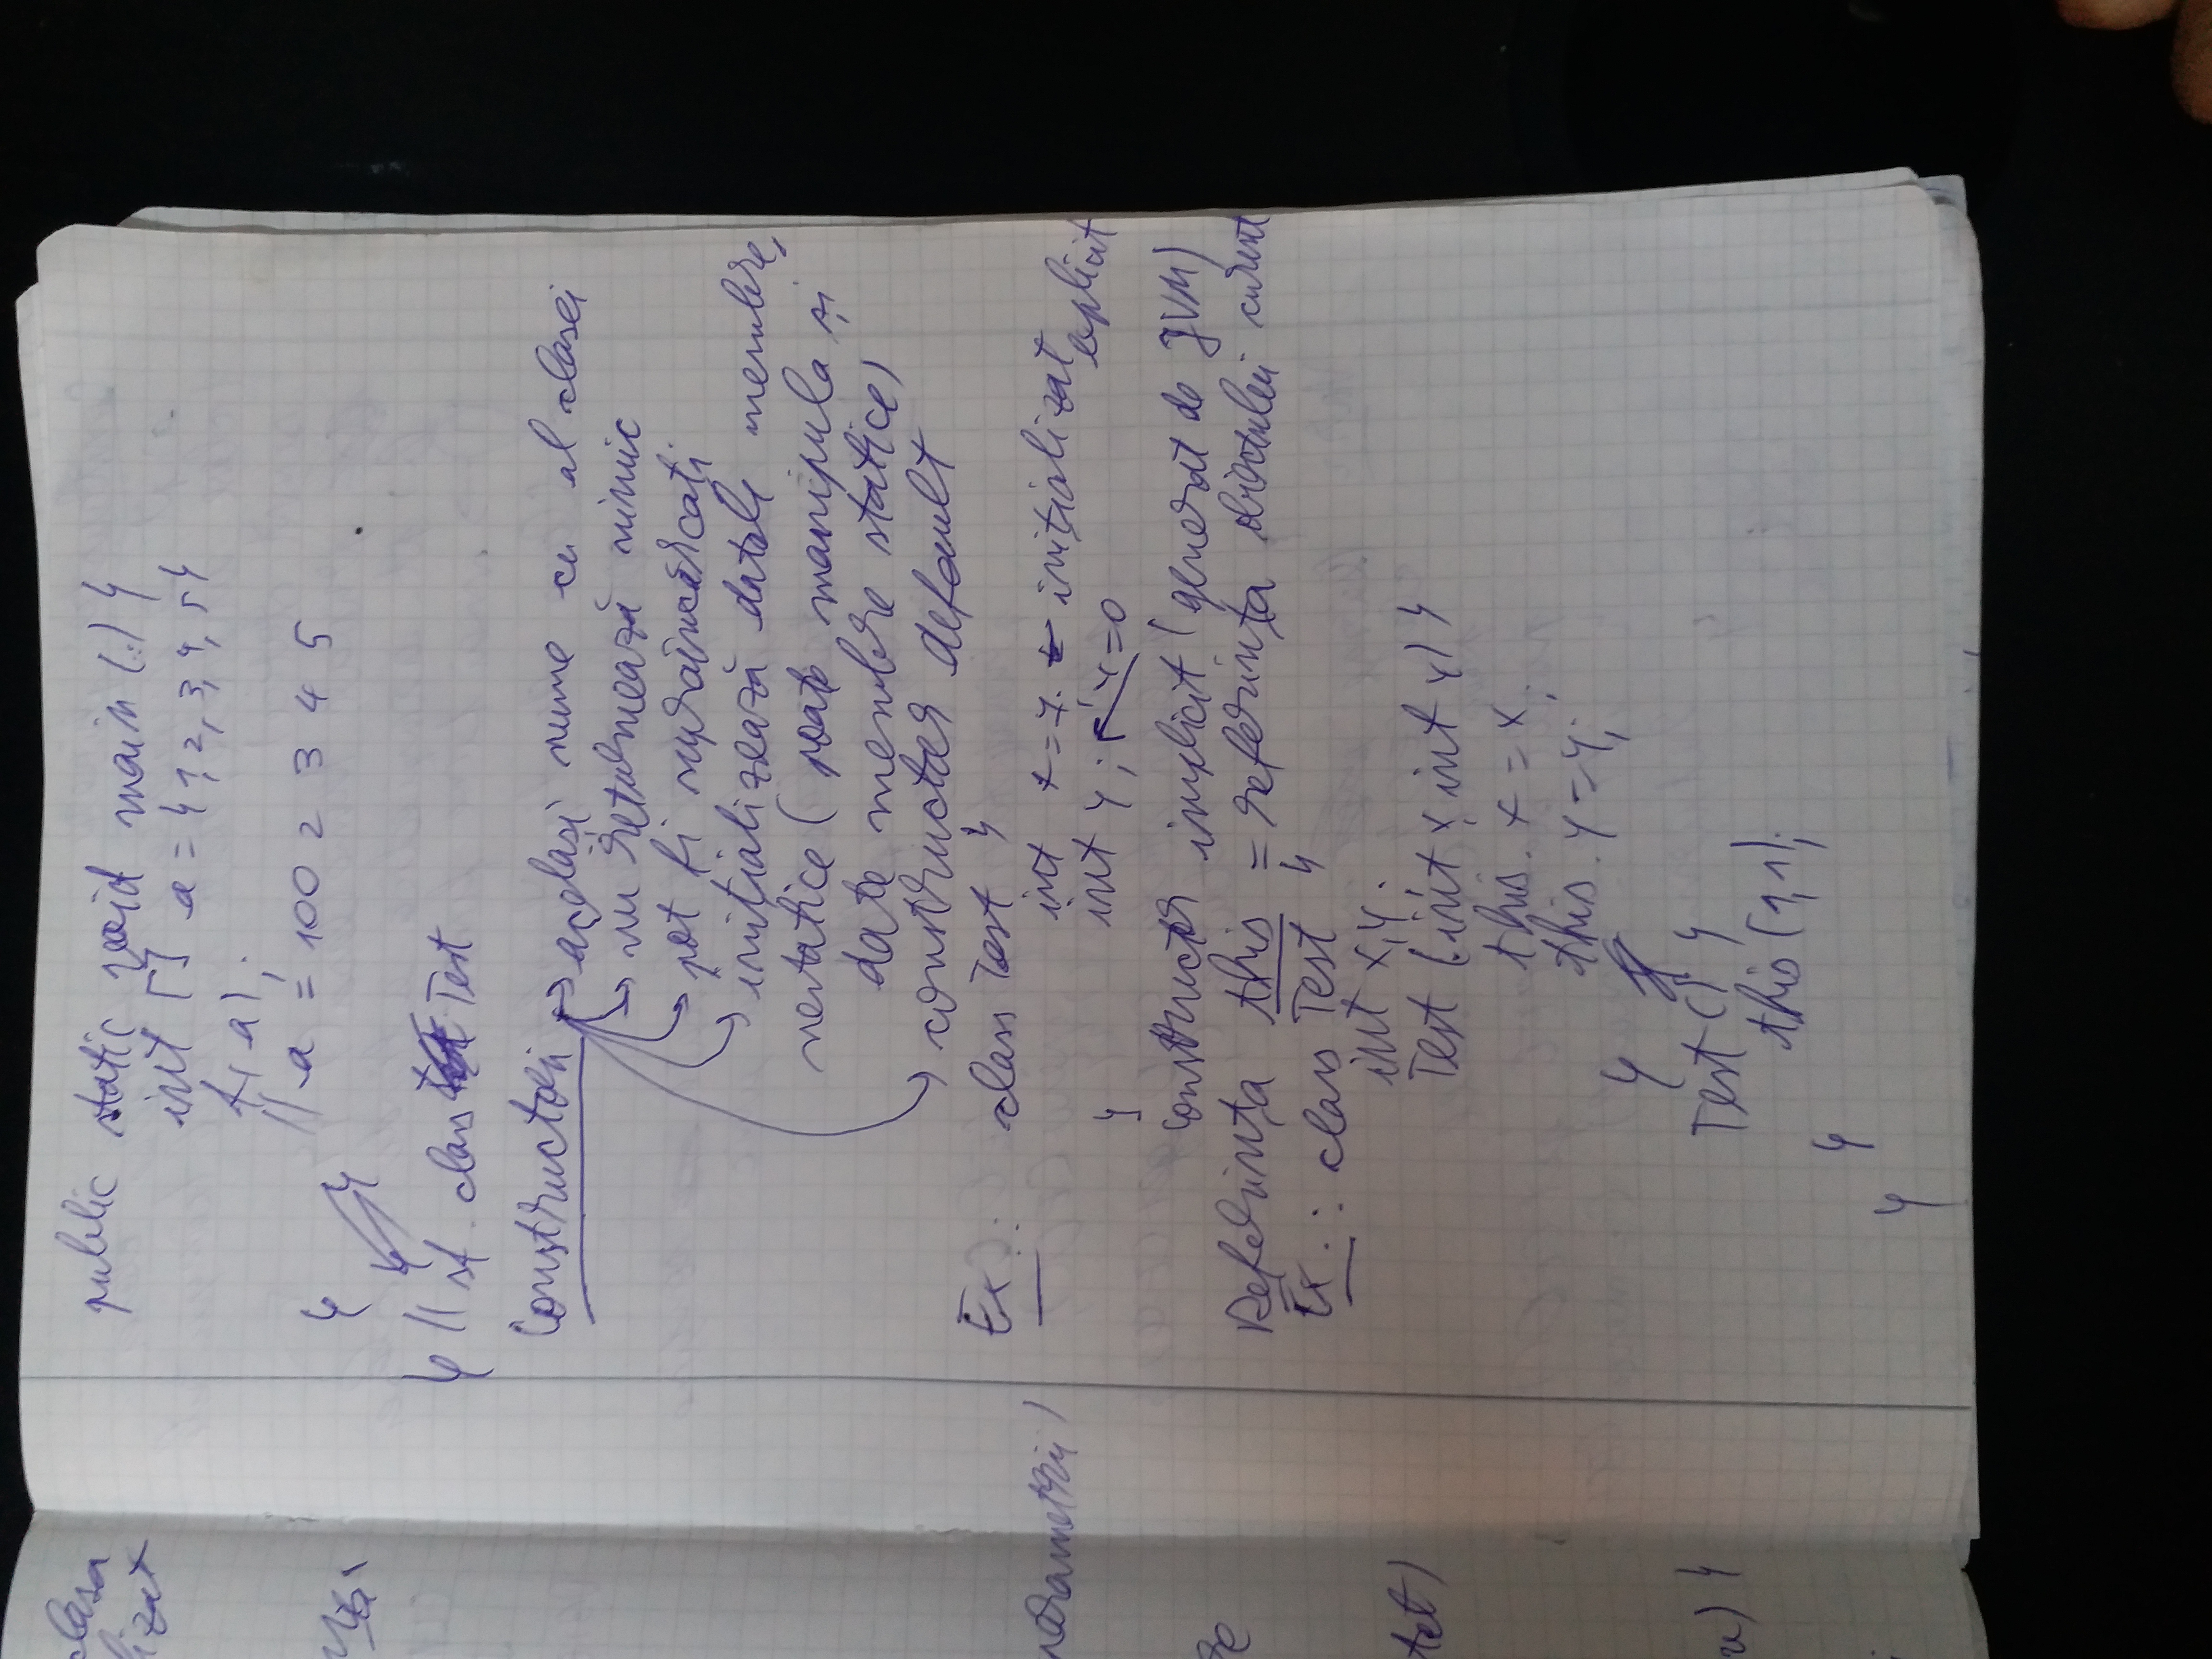 public static void main (..) {
int [] a = {1, 2, 3, 4, 5}
f(a);
// a = 100 2 3 4 5
}
} // sf. class Test
Constructori → același nume cu al clasei
→ nu returnează nimic
→ pot fi supraîncărcați
→ inițializează datele membre,
nestatice (poate manipula și
date membre statice)
→ constructor default
Ex.: class Test {
int x=7; ← inițializat explicit
int y; ← y=0
}
constructor implicit (generat de JVM)
Referința this = referința obiectului curent
Ex.: class Test {
int x,y;
Test (int x, int y) {
this.x = x;
this.y = y;
}
Test () {
this(1,1);
}
}
clasa
parametrii)